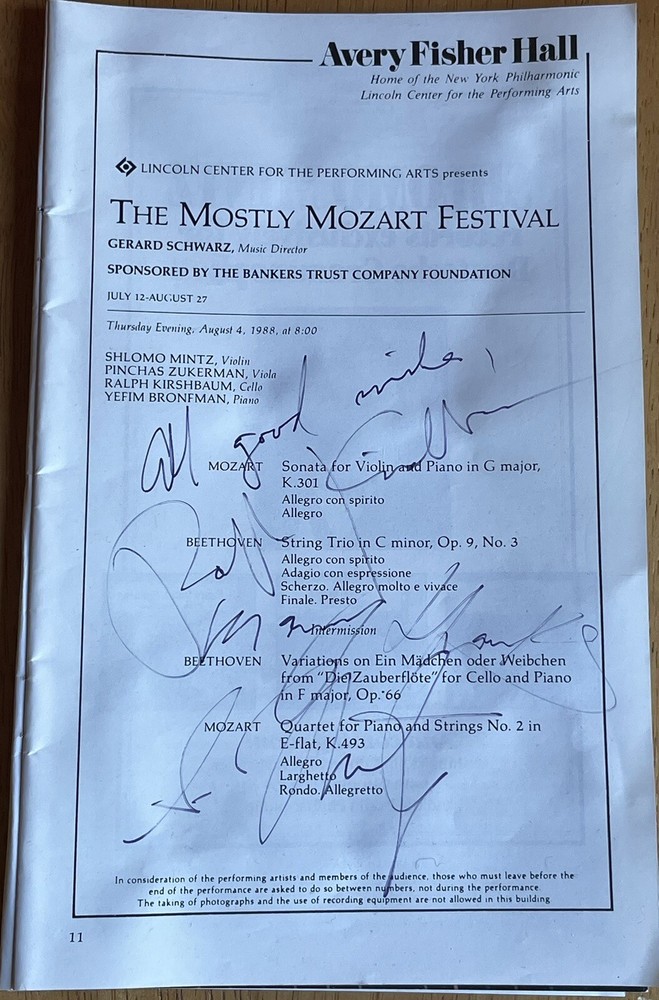 Avery Fisher Hall
Home of the New York Philharmonic
Lincoln Center for the Performing Arts
LINCOLN CENTER FOR THE PERFORMING ARTS presents
THE MOSTLY MOZART FESTIVAL
GERARD SCHWARZ, Music Director
SPONSORED BY THE BANKERS TRUST COMPANY FOUNDATION
JULY 12-AUGUST 27
Thursday Evening, August 4, 1988, at 8:00
SHLOMO MINTZ, Violin
PINCHAS ZUKERMAN, Viola
RALPH KIRSHBAUM, Cello
YEFIM BRONFMAN, Piano
All good wishes!
MOZART Sonata for Violin and Piano in G major,
K.301
Allegro con spirito
Allegro
Ralph Kirshbaum
BEETHOVEN String Trio in C minor, Op. 9, No. 3
Allegro con spirito
Adagio con espressione
Scherzo. Allegro molto e vivace
Finale. Presto
many thanks
Intermission
BEETHOVEN Variations on Ein Mädchen oder Weibchen
from "Die Zauberflöte" for Cello and Piano
in F major, Op. 66
MOZART Quartet for Piano and Strings No. 2 in
E-flat, K.493
Allegro
Larghetto
Rondo. Allegretto
In consideration of the performing artists and members of the audience, those who must leave before the
end of the performance are asked to do so between numbers, not during the performance.
The taking of photographs and the use of recording equipment are not allowed in this building
11